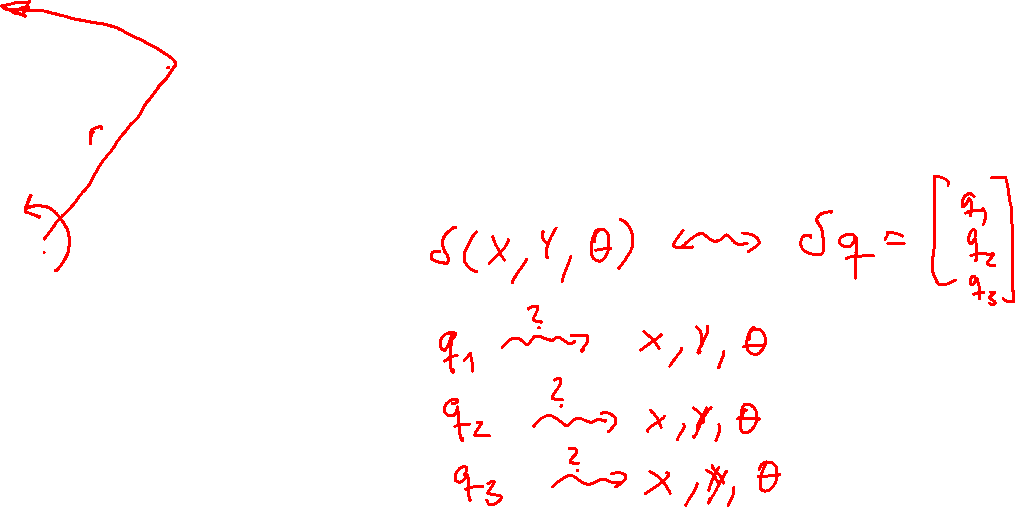 r
δ(x, Y, θ) ↭ δq = [q₁ q₂ q₃]
q₁ ⇝? x, Y, θ
q₂ ⇝? x, Y, θ
q₃ ⇝? x, Y, θ